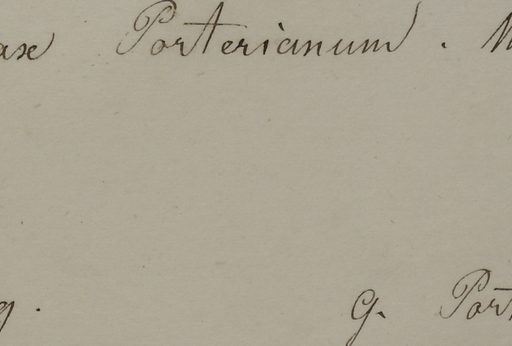 ax Porterianum. M
g. G. Port